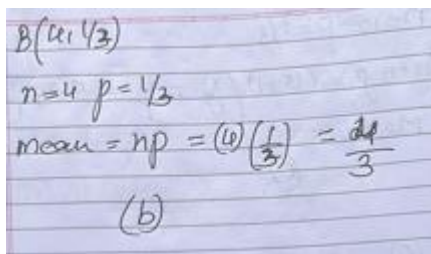 B(4, 1/3)
n=4 p=1/3
mean = np = (4)(1/3) = 4/3
(b)